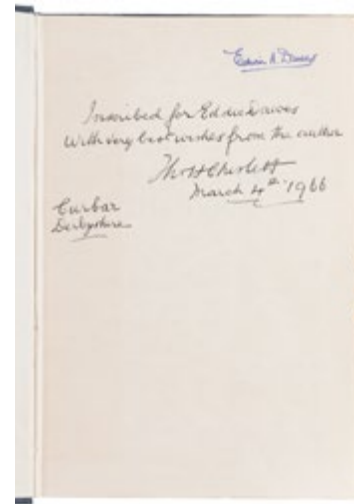 Edwin A. Dawes
Inscribed for Eddie Dawes
With very best wishes from the author
Thos H Chislett
March 4th 1966
Curbar
Derbyshire